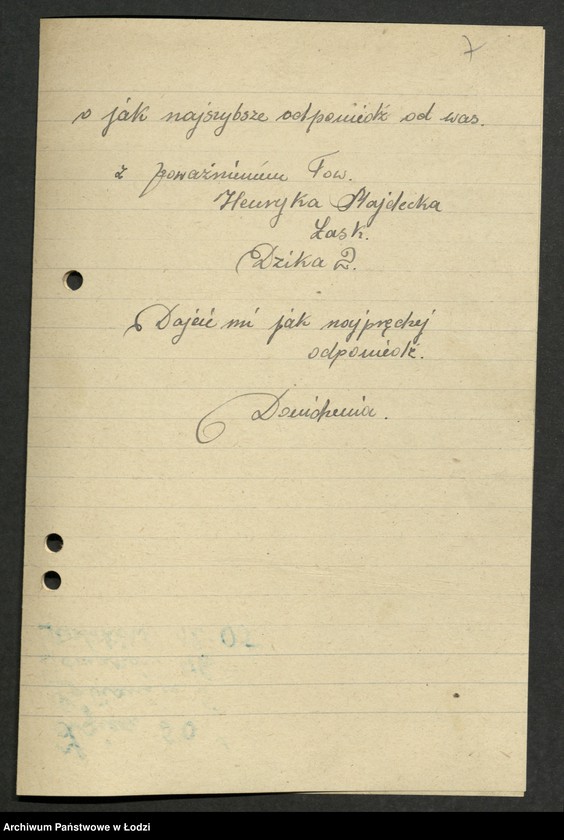 7
o jak najszybsze odpowiedź od was.
z poważnieniem Tow.
Henryka Majdecka
Łask.
Dzika 2.
Dajcie mi jak najprędzej
odpowiedź.
Dowidzenia.
50
Archiwum Państwowe w Łodzi